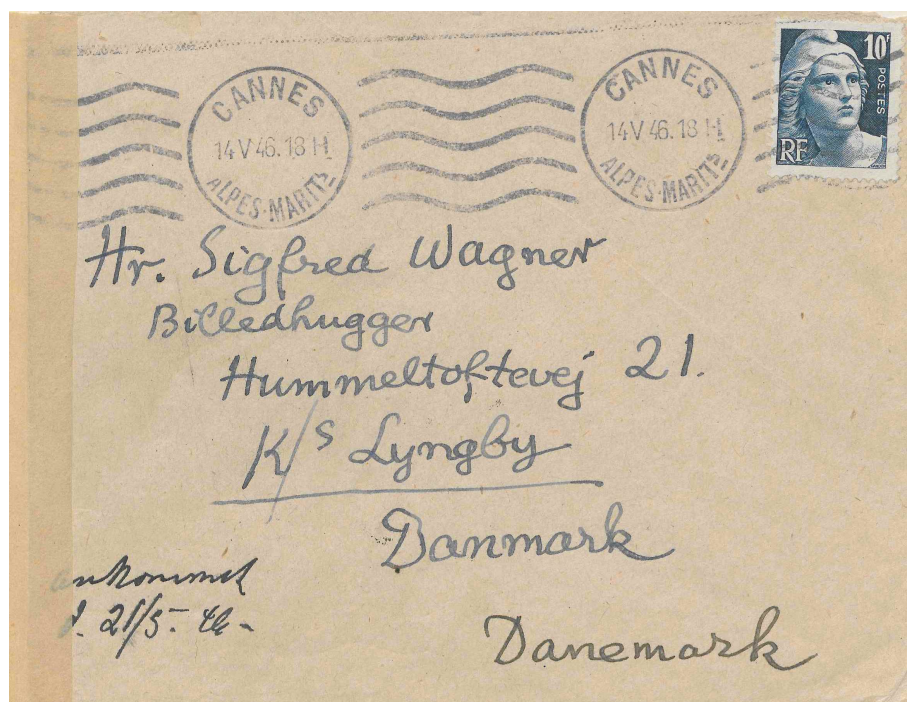 CANNES
14 V 46. 18 H
ALPES-MARITS
CANNES
14 V 46. 18 H
ALPES-MARITS
10F
POSTES
RF
Hr. Sigfred Wagner
Billedhugger
Hummeltoftevej 21.
K/s Lyngby
Danmark
ankommet
d. 21/5. 46-
Danemark